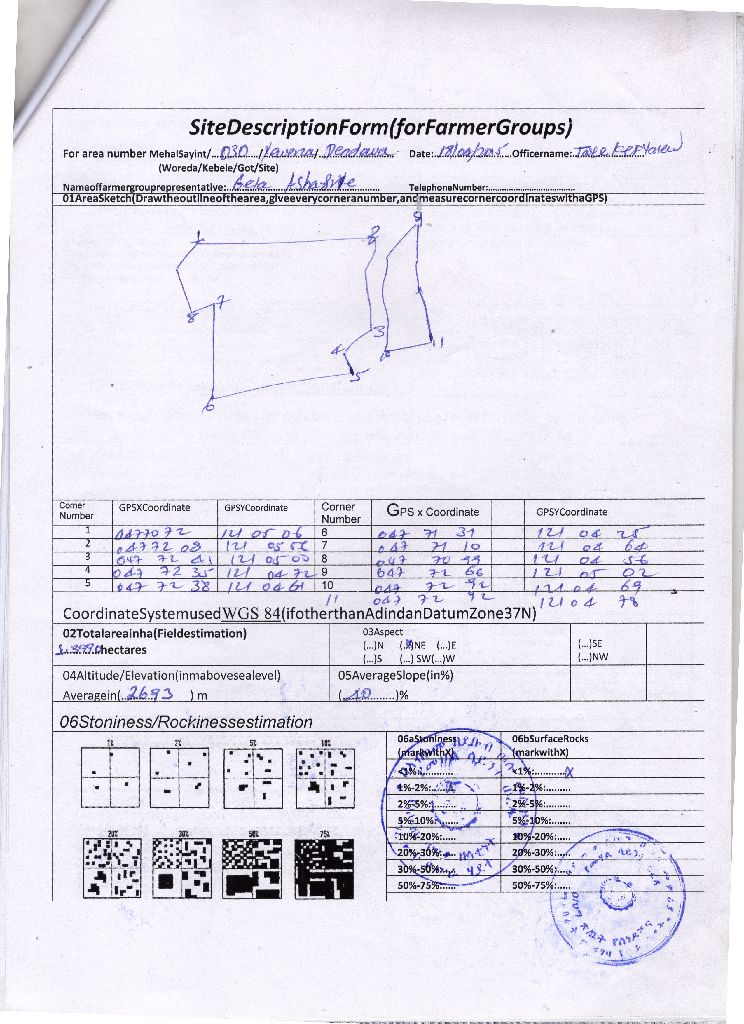 SiteDescriptionForm(forFarmerGroups)
For area number MehalSayint/ 030 / Date: Officername:
(Woreda/Kebele/Got/Site)
Nameoffarmergrouprepresentative: TelephoneNumber:
01AreaSketch(Drawtheoutlineofthearea,giveeverycorneranumber,andmeasurecornercoordinateswithaGPS)
9
1 2
8 7
3
4 11
5
6
Corner Number GPSXCoordinate GPSYCoordinate Corner Number GPS x Coordinate GPSYCoordinate
1 0477072 121 05 06 6 047 71 31 121 04 25
2 04772 08 121 05 7 047 71 10 121 04 64
3 047 72 41 121 05 00 8 047 70 99 121 04 56
4 047 72 35 121 04 72 9 047 72 66 121 05 02
5 047 72 38 121 04 61 10 047 72 92 121 04 69
11 047 72 92 121 04 78
CoordinateSystemusedWGS 84(ifotherthanAdindanDatumZone37N)
02Totalareainha(Fieldestimation)
hectares
03Aspect
(...)N (X)NE (...)E (...)SE
(...)S (...) SW(...)W (...)NW
04Altitude/Elevation(inmabovesealevel) 05AverageSlope(in%)
Averagein(..2693 ) m (..10........)%
06Stoniness/Rockinessestimation
1% 2% 5% 10%
20% 30% 50% 75%
06aStoniness (markwithX) 06bSurfaceRocks (markwithX)
<1%: <1%:...........X
1%-2%:.....X 1%-2%:........
2%-5%: 2%-5%:......
5%-10%: 5%-10%:.....
10%-20%: 10%-20%:.....
20%-30%: 20%-30%:.....
30%-50%: 30%-50%:.....
50%-75%: 50%-75%:.....